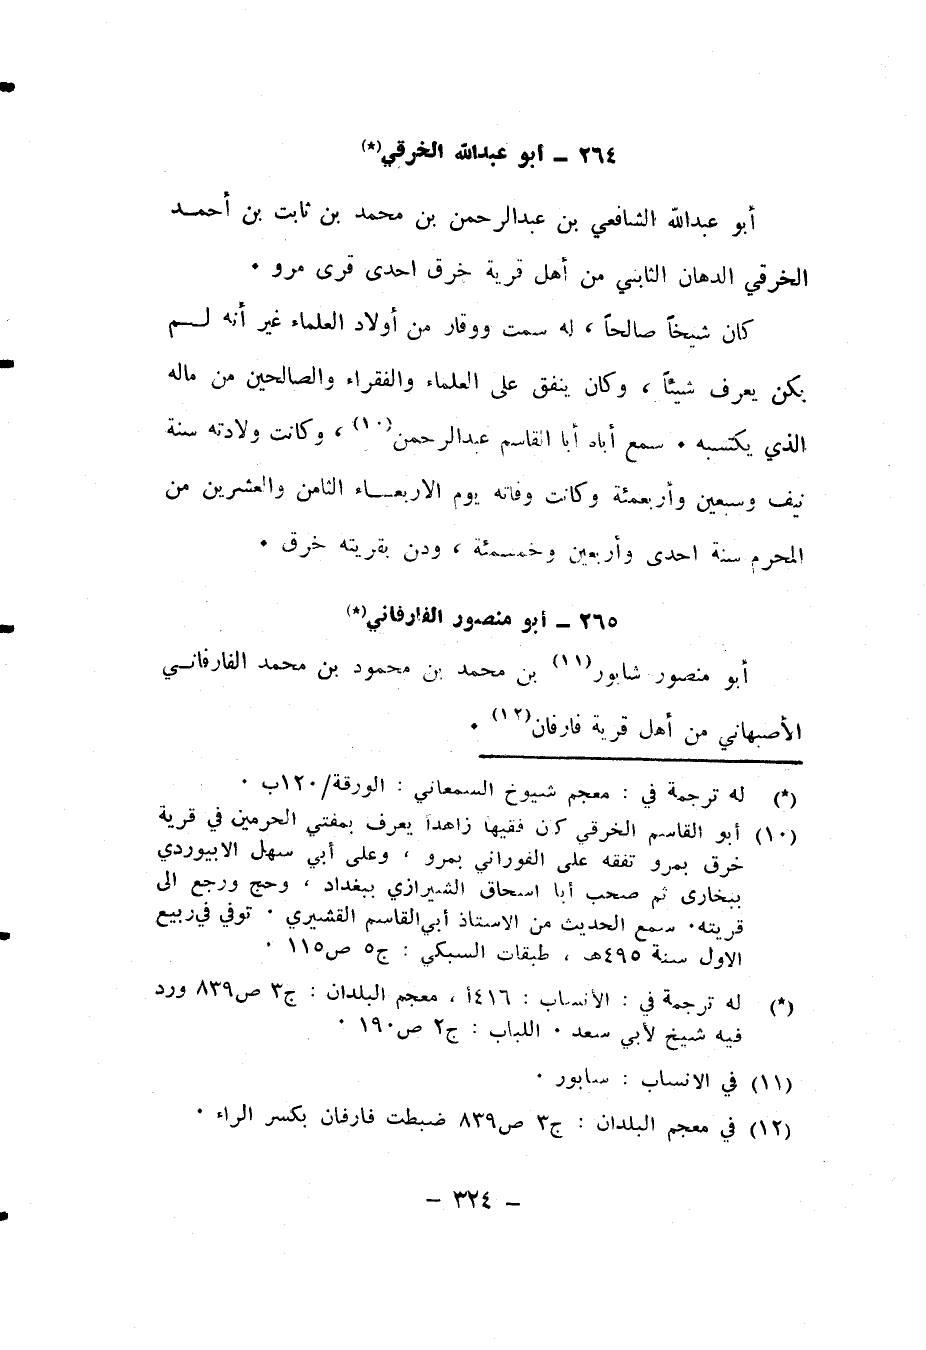 ٢٦٤ ــ أبو عبدالله الخرقي(*)
أبو عبدالله الشافعي بن عبدالرحمن بن محمد بن ثابت بن أحمــد
الخرقي الدهان الثابتي من أهل قرية خرق احدى قرى مرو ٠
كان شيخاً صالحاً ، له سمت ووقار من أولاد العلماء غير أنه لــم
يكن يعرف شيئاً ، وكان ينفق على العلماء والفقراء والصالحين من ماله
الذي يكتسبه ٠ سمع أباه أبا القاسم عبدالرحمن(١٠) ، وكانت ولادته سنة
نيف وسبعين وأربعمئة وكانت وفاته يوم الاربعــاء الثامن والعشرين من
المحرم سنة احدى وأربعين وخمسمئة ، ودن بقريته خرق ٠
٢٦٥ ــ أبو منصور الفارفاني(*)
أبو منصور شابور(١١) بن محمد بن محمود بن محمد الفارفانــي
الأصبهاني من أهل قرية فارفان(١٢) ٠
(*) له ترجمة في : معجم شيوخ السمعاني : الورقة/١٢٠ب ٠
(١٠) أبو القاسم الخرقي كن فقيها زاهداً يعرف بمفتي الحرمين في قرية
خرق بمرو تفقه على الفوراني بمرو ، وعلى أبي سهل الابيوردي
ببخارى ثم صحب أبا اسحاق الشيرازي ببغداد ، وحج ورجع الى
قريته٠ سمع الحديث من الاستاذ أبي‌القاسم القشيري ٠ توفي في‌ربيع
الاول سنة ٤٩٥هـ ، طبقات السبكي : ج٥ ص١١٥ ٠
(*) له ترجمة في : الأنساب : ٤١٦أ ، معجم البلدان : ج٣ ص٨٣٩ ورد
فيه شيخ لأبي سعد ٠ اللباب : ج٢ ص١٩٠ ٠
(١١) في الانساب : سابور ٠
(١٢) في معجم البلدان : ج٣ ص٨٣٩ ضبطت فارفان بكسر الراء ٠
ــ ٣٢٤ ــ